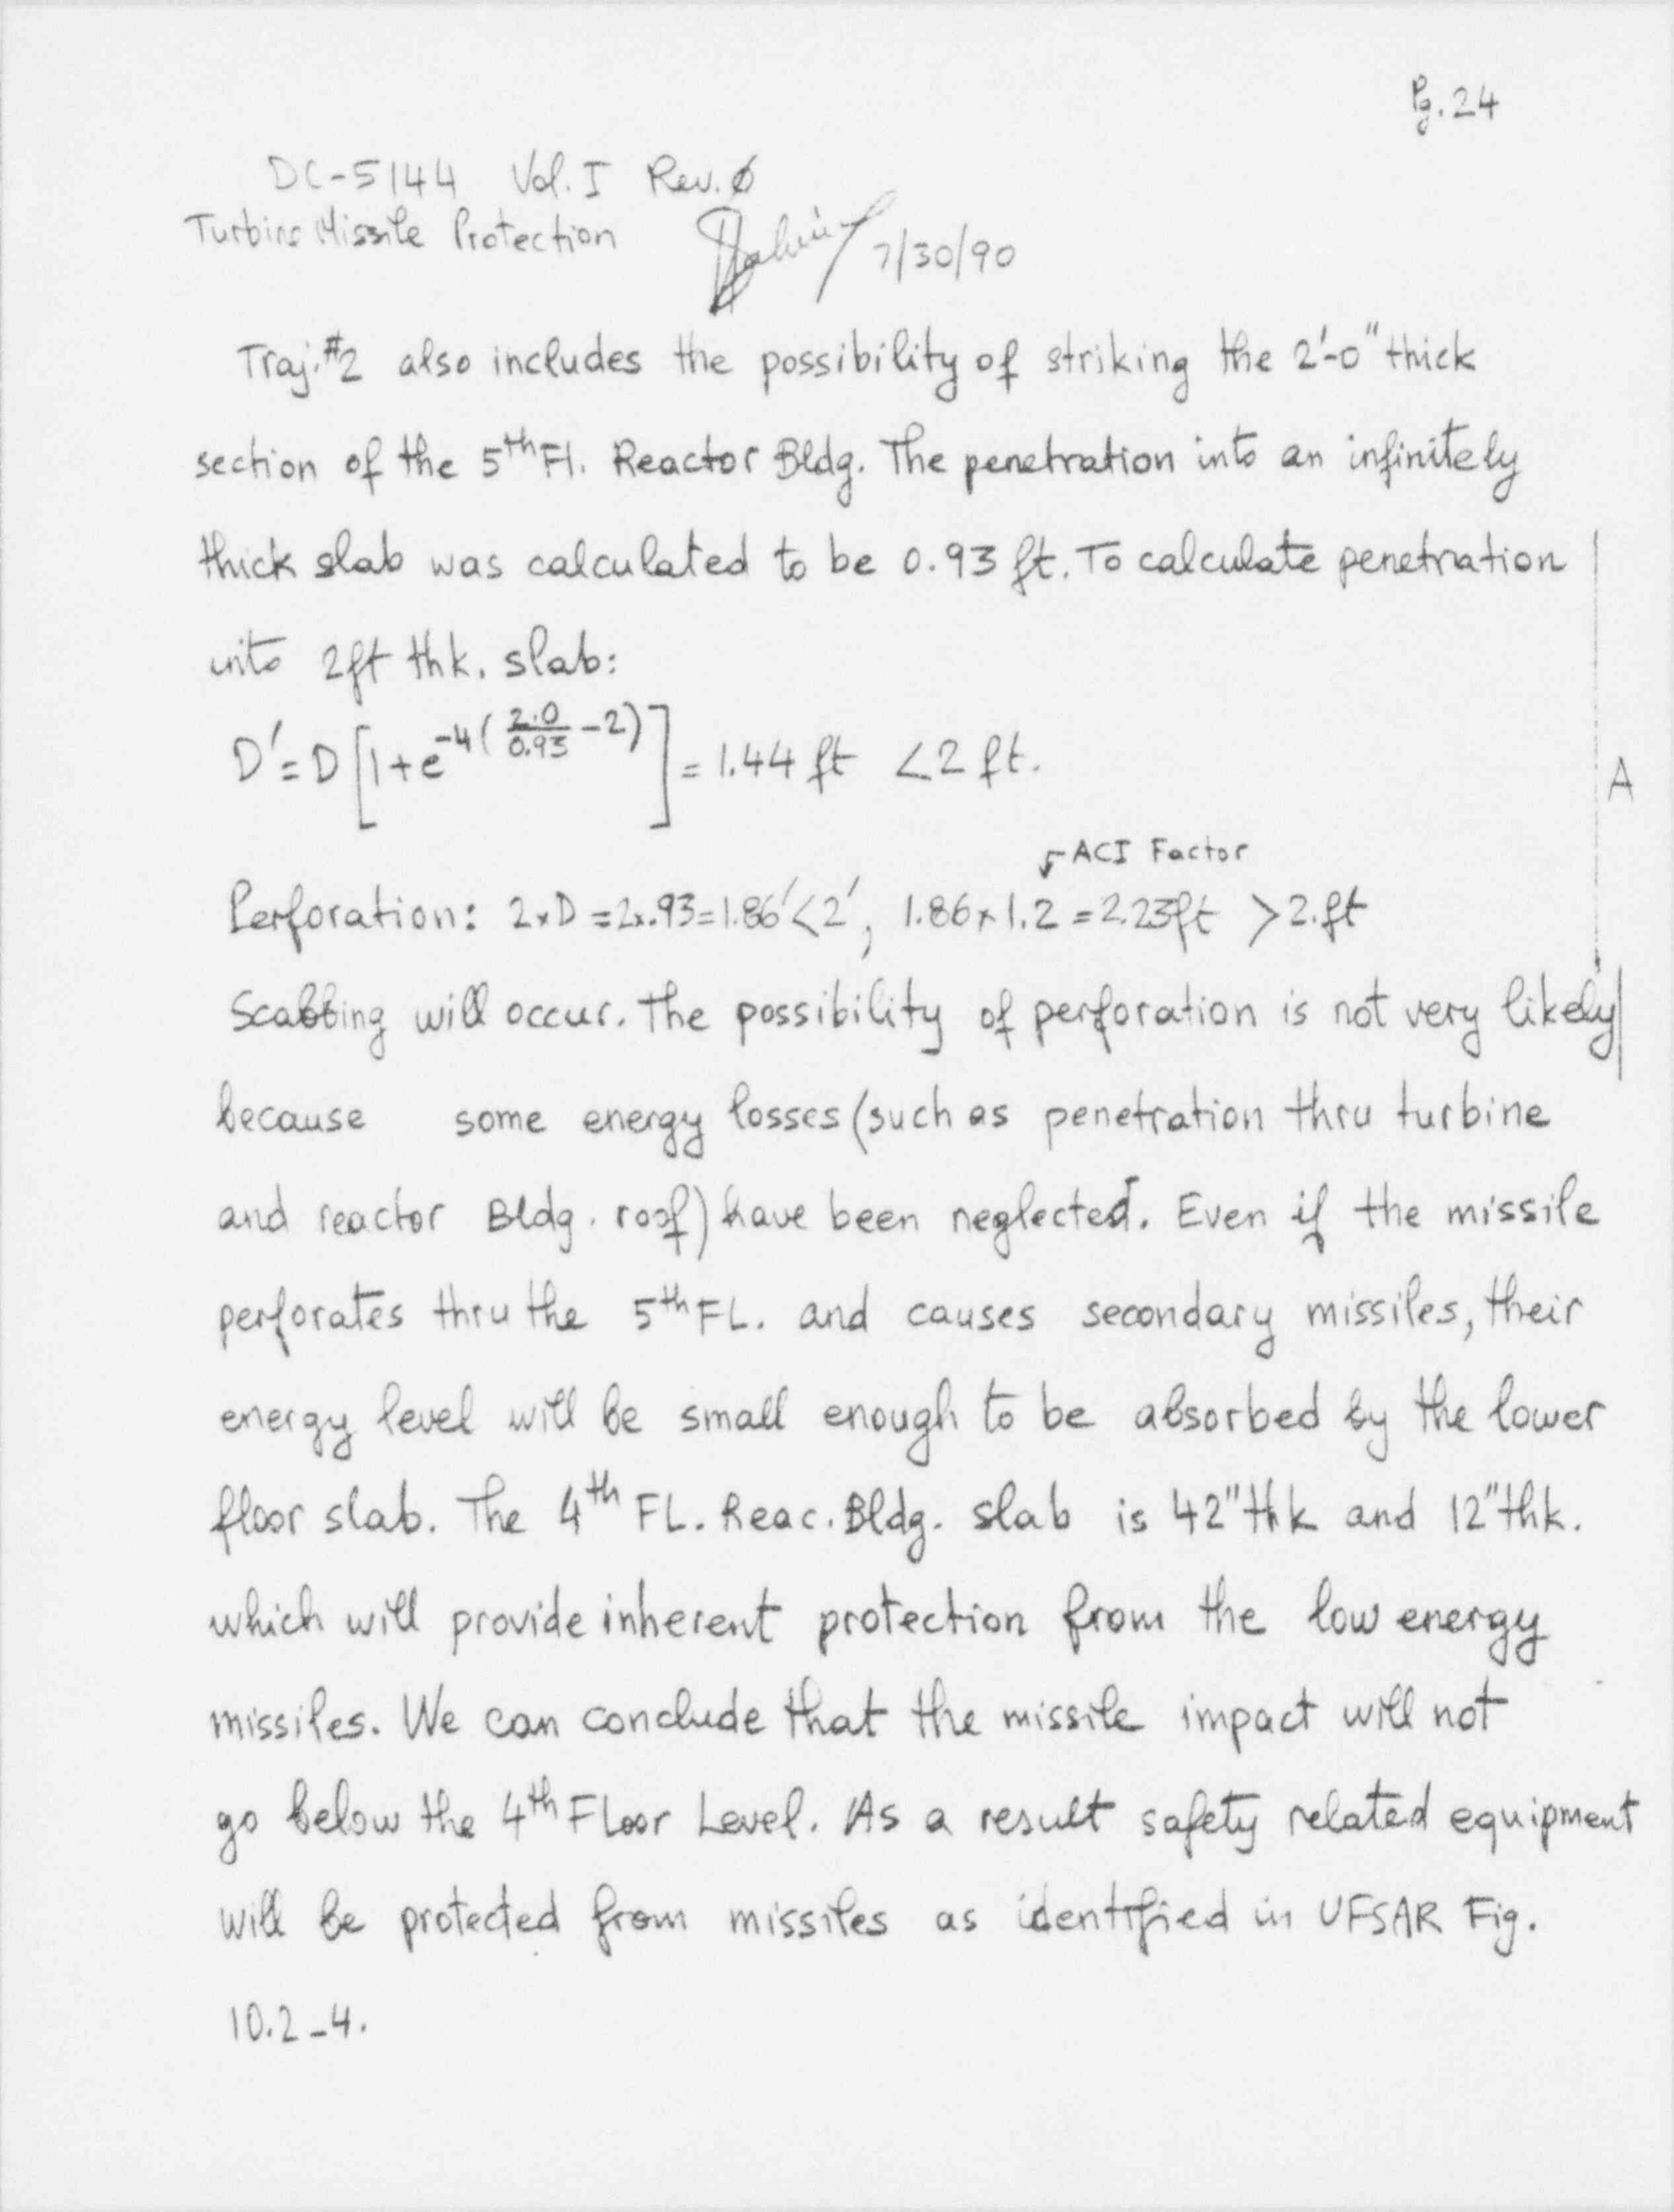 Pg. 24
DC-5144 Vol. I Rev. Ø
Turbine Missile Protection 7/30/90
Traj. #2 also includes the possibility of striking the 2'-0" thick
section of the 5th Fl. Reactor Bldg. The penetration into an infinitely
thick slab was calculated to be 0.93 ft. To calculate penetration
into 2ft thk. slab:
D' = D [1 + e^{-4(2.0/0.93 - 2)}] = 1.44 ft < 2 ft.
A
ACI Factor
Perforation: 2xD = 2x.93 = 1.86' < 2', 1.86 x 1.2 = 2.23ft > 2.ft
Scabbing will occur. The possibility of perforation is not very likely
because some energy losses (such as penetration thru turbine
and reactor Bldg. roof) have been neglected. Even if the missile
perforates thru the 5th FL. and causes secondary missiles, their
energy level will be small enough to be absorbed by the lower
floor slab. The 4th FL. Reac. Bldg. slab is 42" thk and 12" thk.
which will provide inherent protection from the low energy
missiles. We can conclude that the missile impact will not
go below the 4th Floor Level. As a result safety related equipment
will be protected from missiles as identified in UFSAR Fig.
10.2-4.